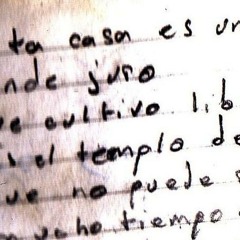 ta casa es un
nde juro
e cultivo lib
s el templo de
ue no puede s
ucho tiempo